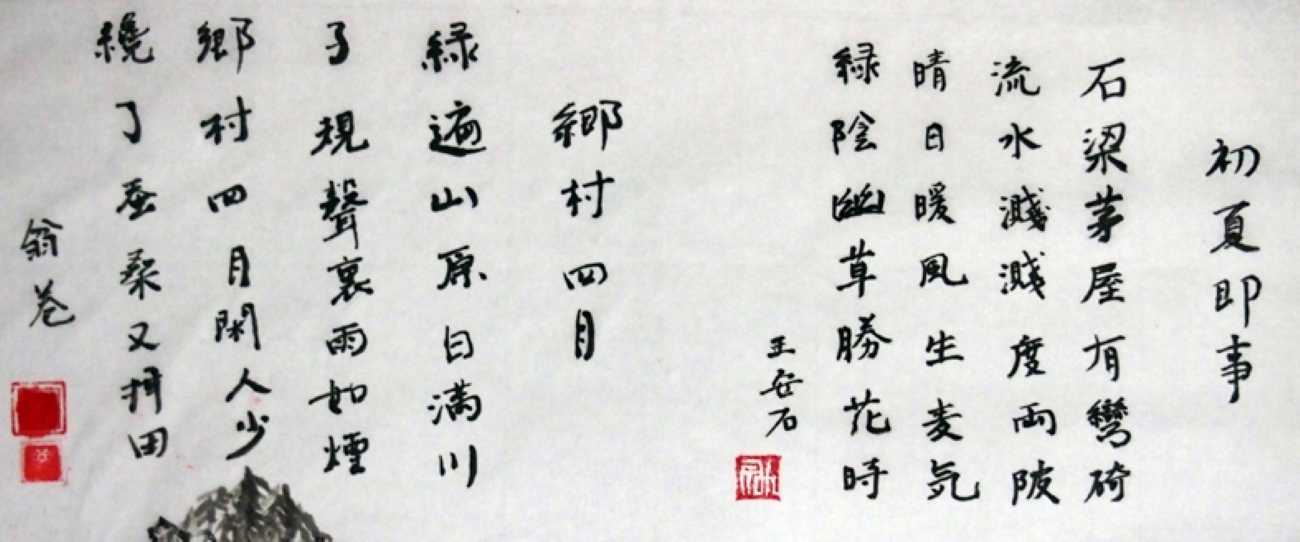 初夏即事
石梁茅屋有彎碕
流水濺濺度兩陂
晴日暖風生麦気
緑陰幽草勝花時
王安石
郷村四月
緑遍山原白満川
子規聲裏雨如煙
郷村四月閑人少
纔了蚕桑又挿田
翁巻